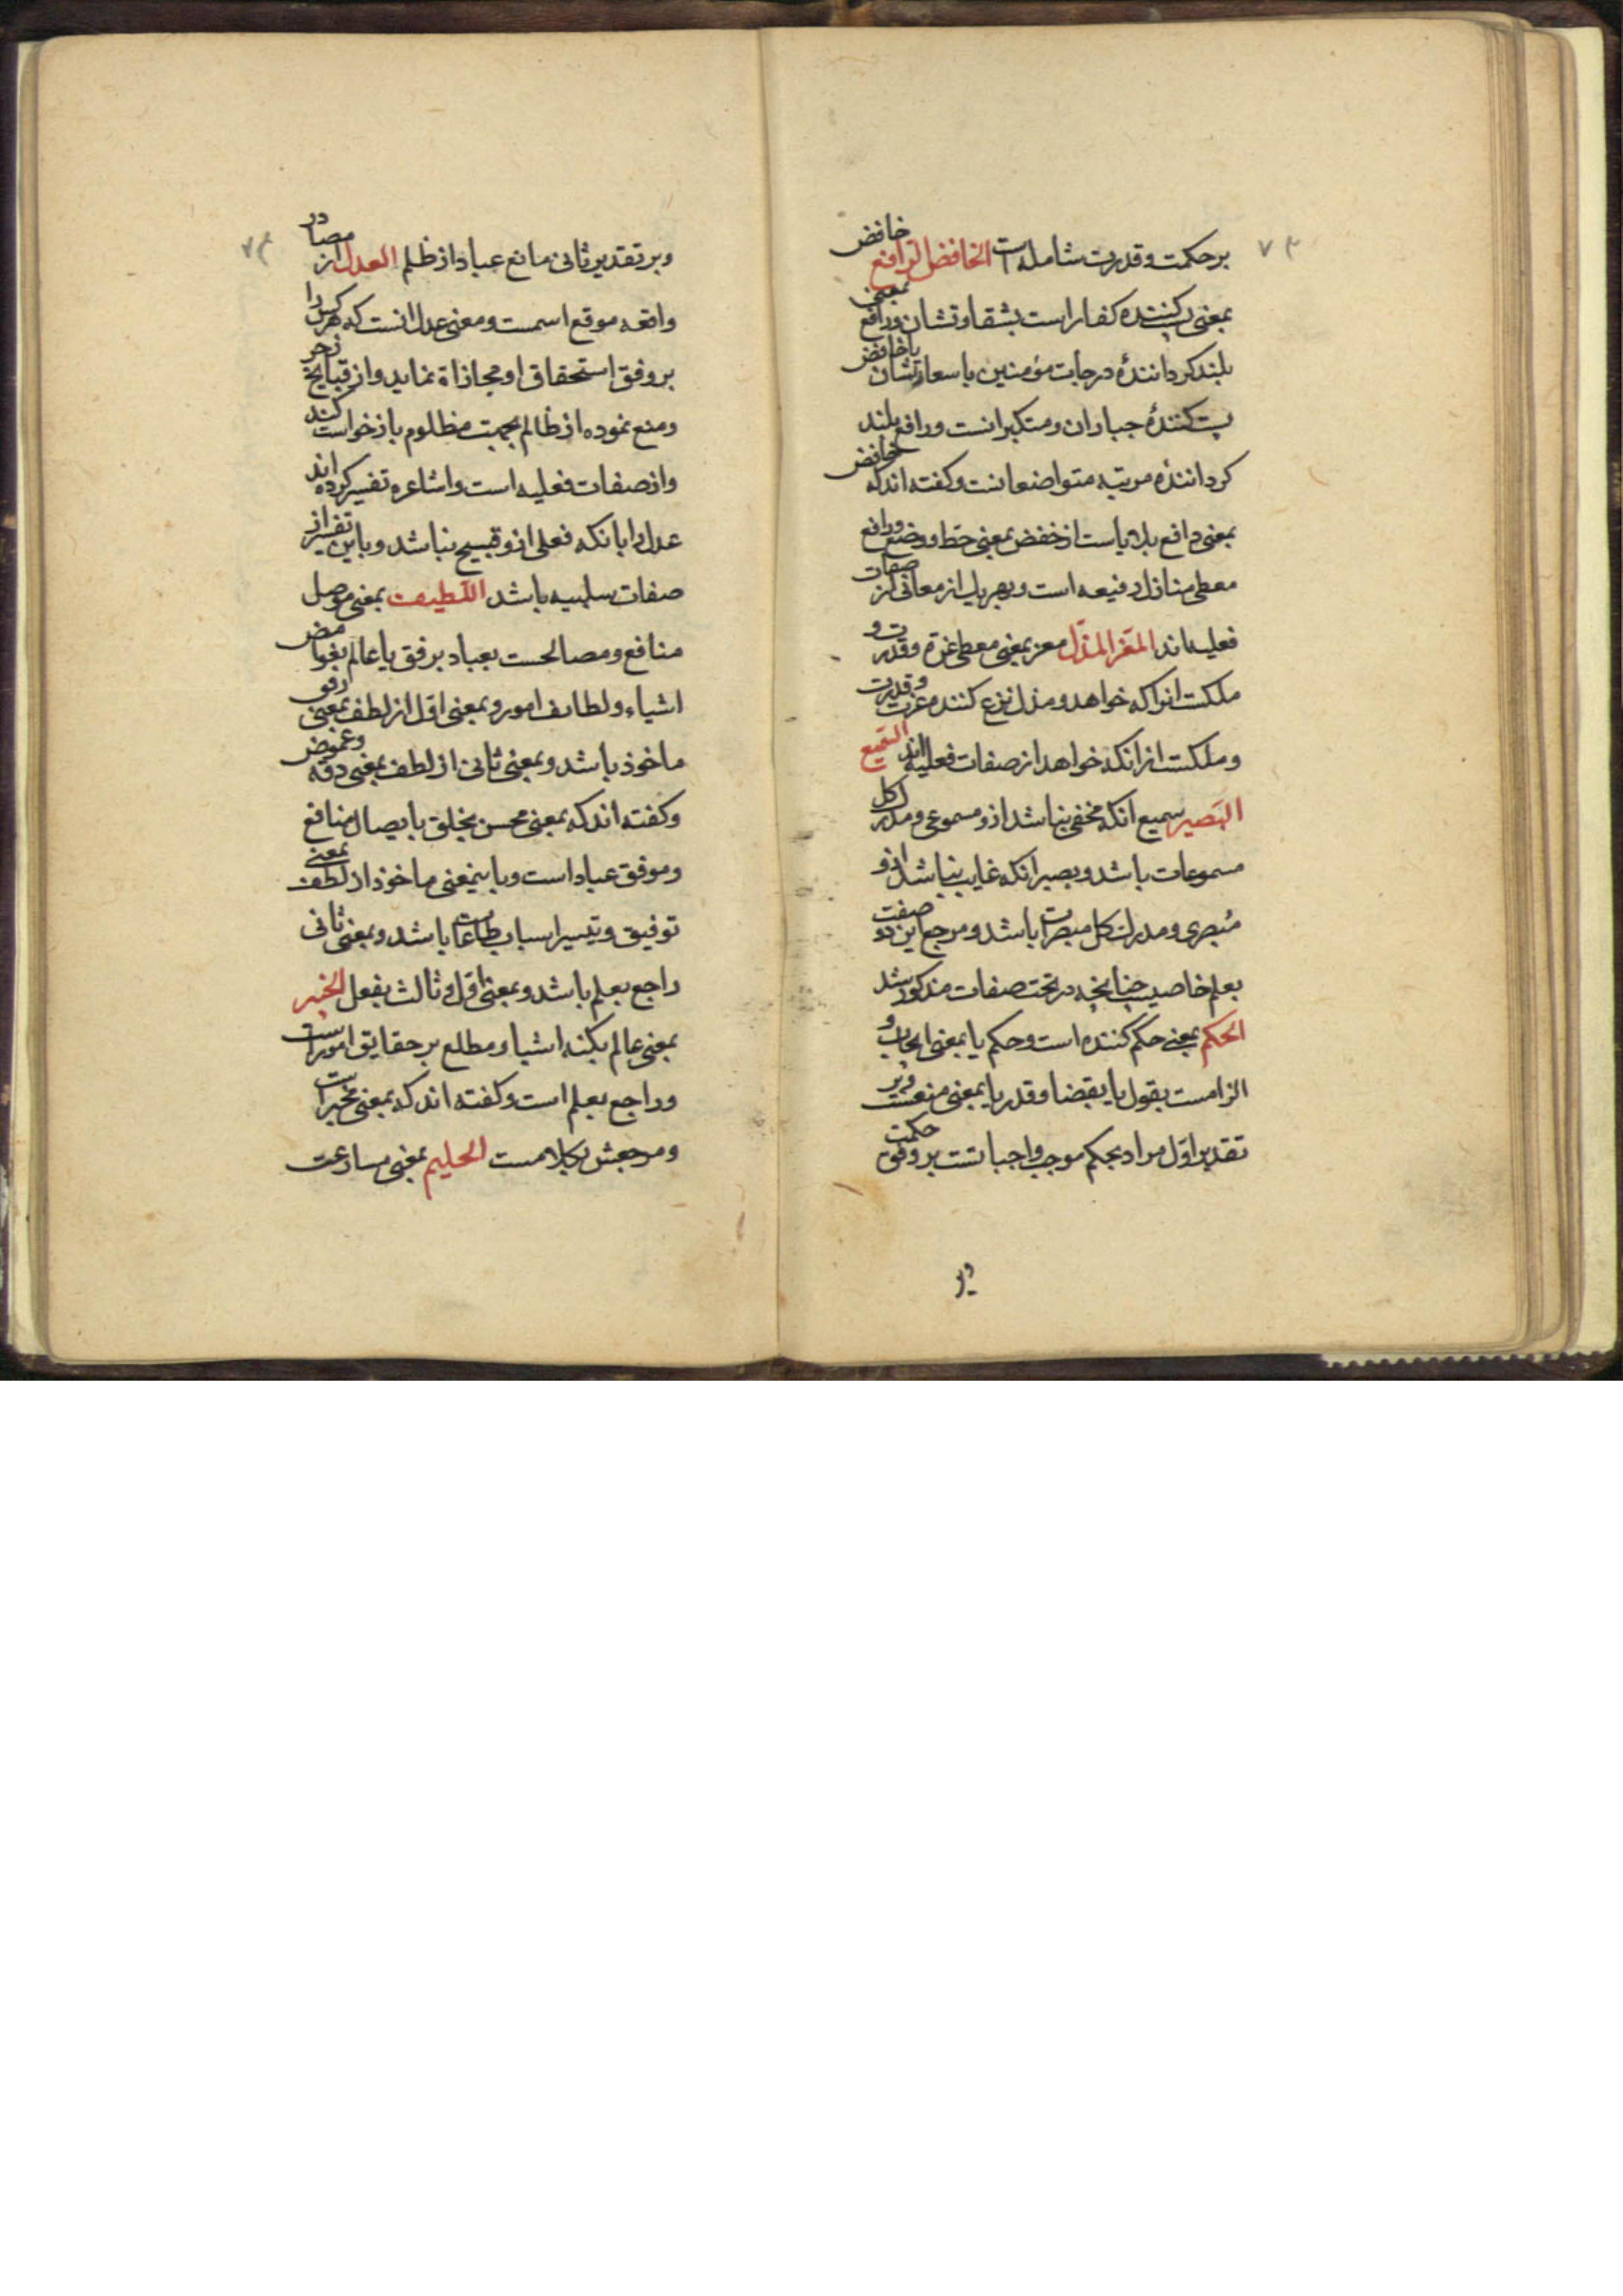 برحکمت و قدرت شامله است الخافض الرافع خافض
بمعنی پست کننده کفار است بشقاوتشان و رافع بمعنی
بلند کرداننده درجات مؤمنین باسعادتشان یا خافض
پست کنندهٔ جباران و متکبرانست و رافع بلند
کردانندهٔ مرتبه متواضعانست و کفته اند که خافض
بمعنی دافع بلایاست از خفض بمعنی حط و وضع و رافع
معطی منازل رفیعه است و بهر یک از معانی از صفات
فعلیه اند المعز المذل معز بمعنی معطی عزة و قدرت و
ملکت انرا که خواهد و مذل نزع کننده عزت و قدرت
و ملکت از انکه خواهد از صفات فعلیه اند السمیع
البصیر سمیع انکه مخفی نباشد ازو مسموعی و مدرک کل
مسموعات باشد و بصیر انکه غایب نباشد ازو
مبصری و مدرک کل مبصرات باشد و مرجع این دو صفت
بعلم خاصیست چنانچه در تحت صفات مذکور شد
الحکم بمعنی حکم کننده است و حکم یا بمعنی ایجاب و
الزامست بقول یا بقضا و قدر یا بمعنی منعست و بر
تقدیر اول مراد بحکم موجب واجباتست بر وفق حکمت
و بر
و بر تقدیر ثانی مانع عباد از ظلم العدل از مصادر
واقعه موقع اسمست و معنی عدل انست که هر کس را
بر وفق استحقاق او مجازاة نماید و از قبایح زجر
و منع نموده از ظالم بجهت مظلوم بازخواست کند
و از صفات فعلیه است و اشاعره تفسیر کرده اند
عدل را بانکه فعلی ازو قبیح نباشد و باین تفسیر از
صفات سلبیه باشد اللطیف بمعنی موصل
منافع و مصالحست بعباد برفق یا عالم بغوامض
اشیاء و لطایف امور و بمعنی اول از لطف بمعنی رفق
ماخوذ باشد و بمعنی ثانی از لطف بمعنی دقه و غموض
و کفته اند که بمعنی محسن بخلق بایصال منافع
و موفق عباد است و باینمعنی ماخوذ از لطف بمعنی
توفیق و تیسیر اسباب طاعات باشد و بمعنی ثانی
راجع بعلم باشد و بمعنی اول و ثالث بفعل الخبیر
بمعنی عالم بکنه اشیا و مطلع بر حقایق امور است
و راجع بعلم است و کفته اند که بمعنی مخبر است
و مرجعش بکلامست الحلیم بمعنی مسارعت